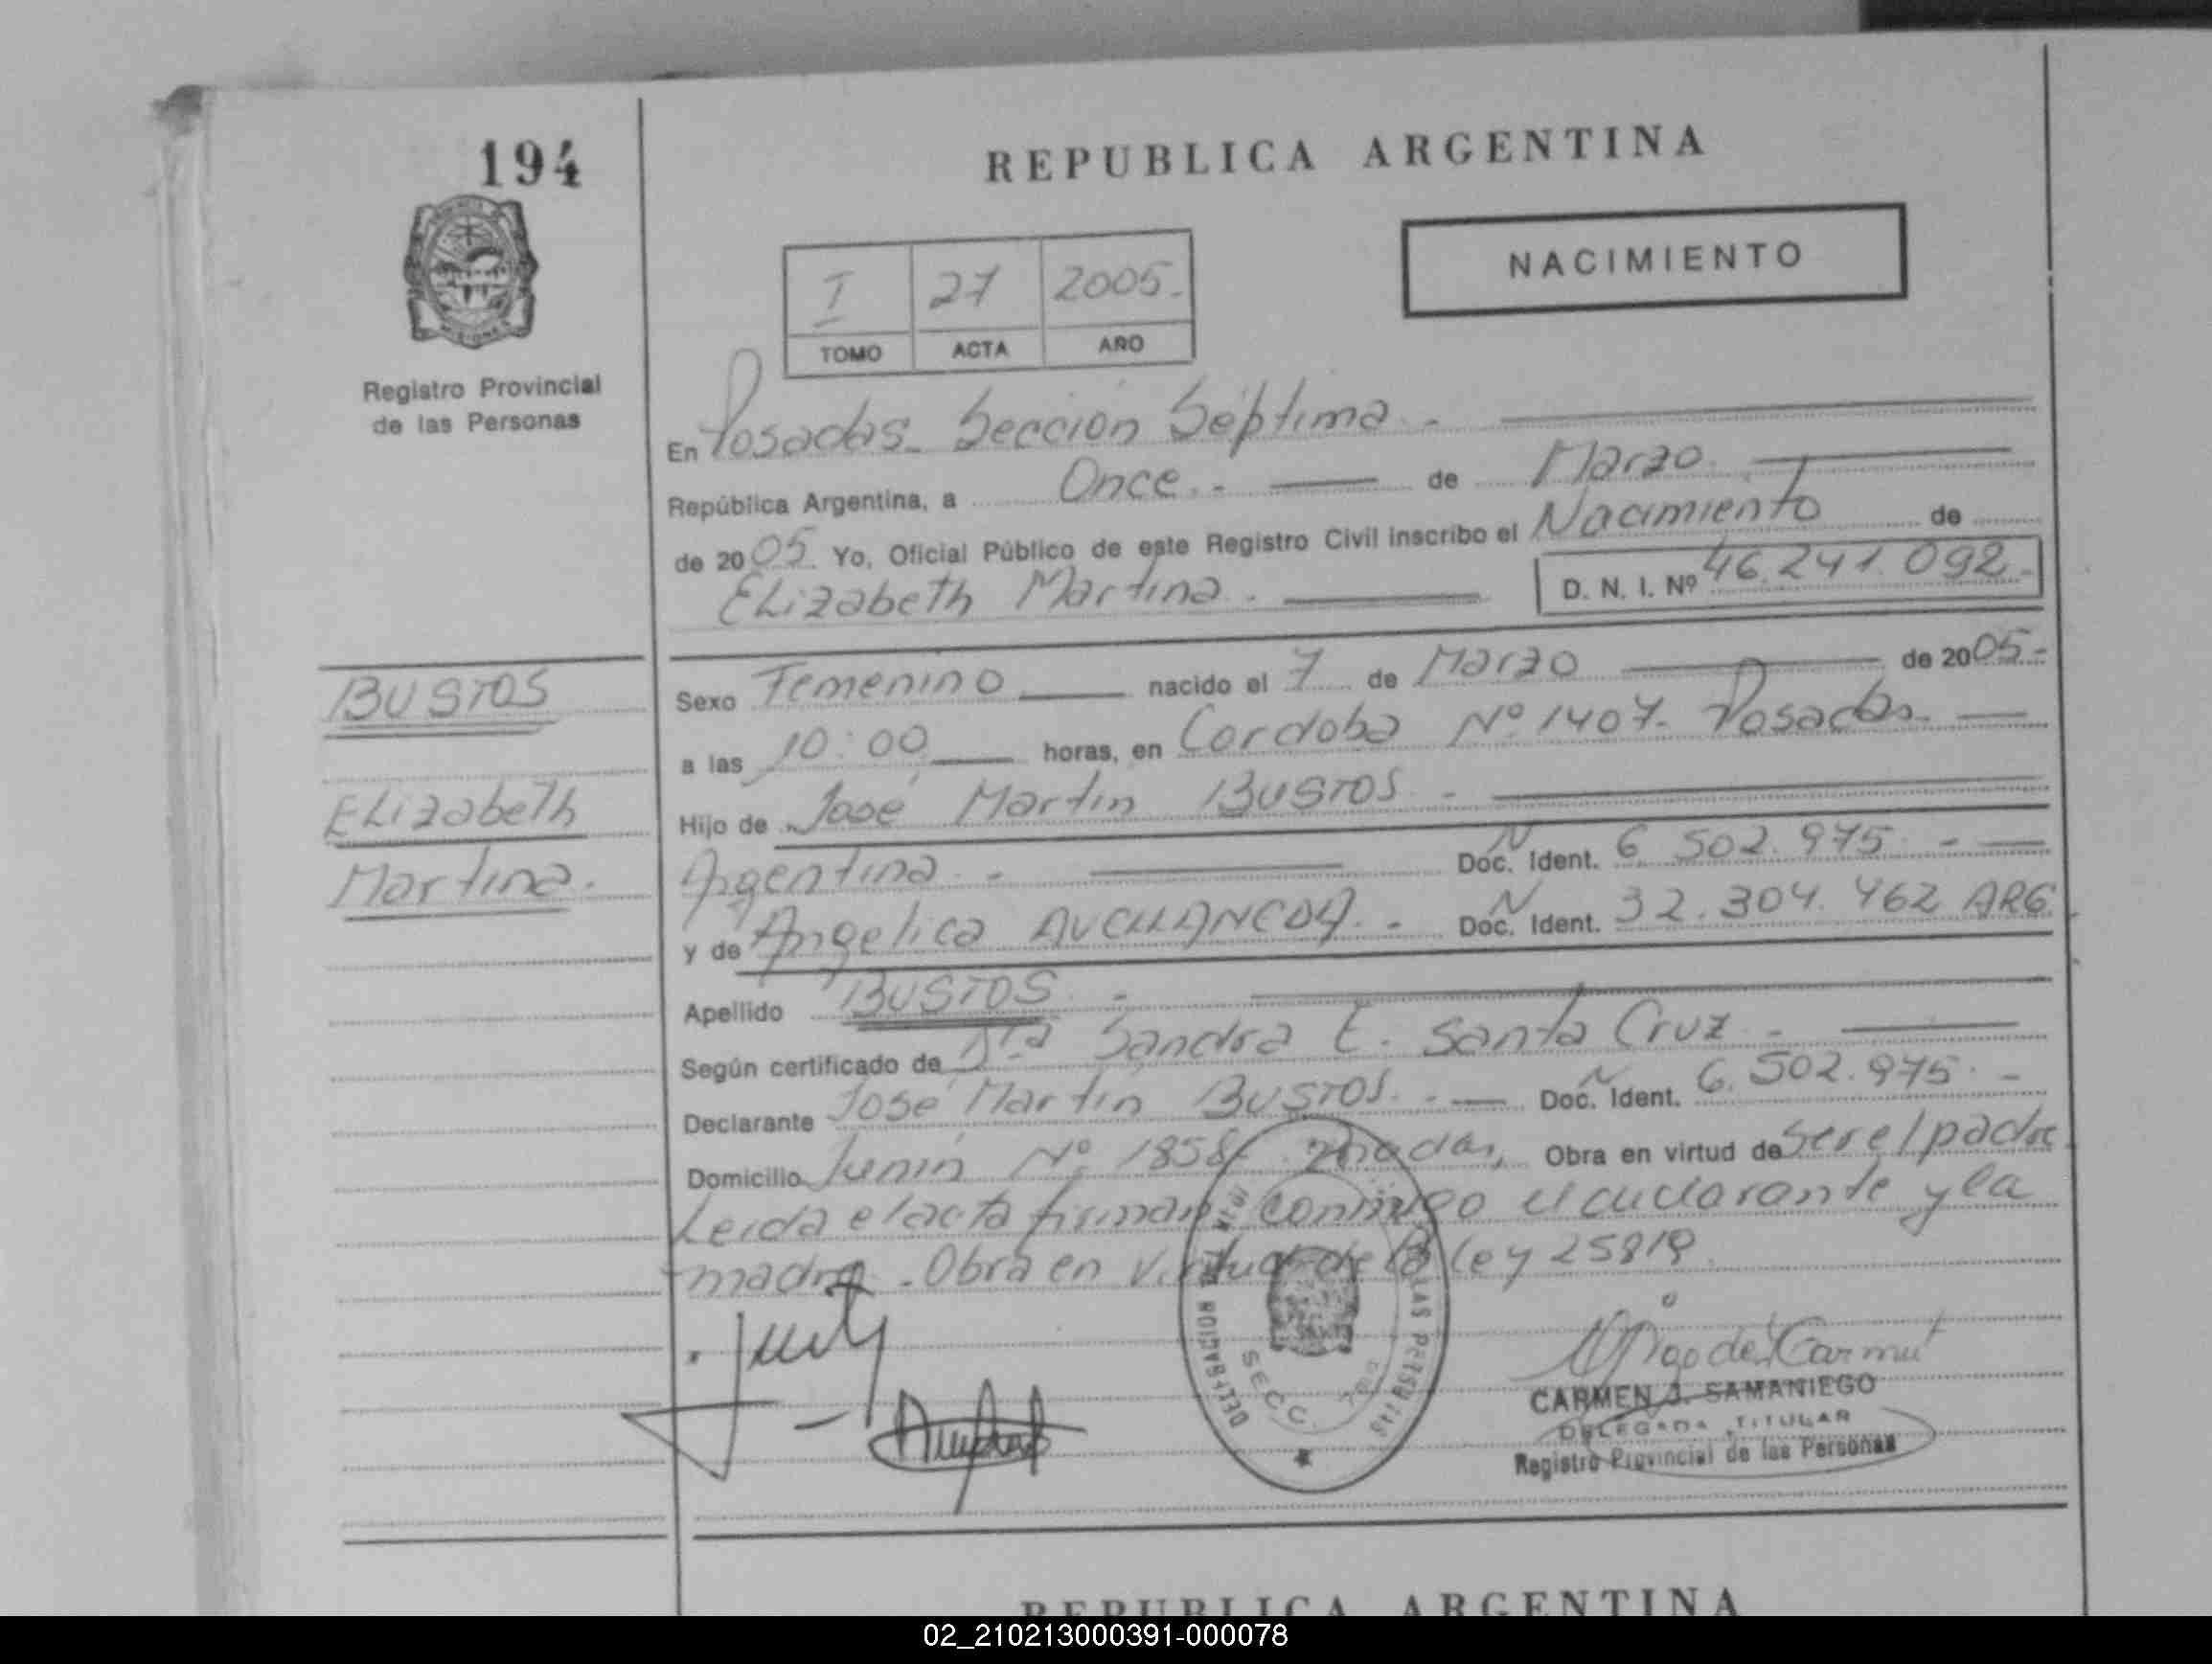 194
REPUBLICA ARGENTINA
NACIMIENTO
I 27 2005.-
TOMO ACTA AÑO
Registro Provincial
de las Personas
En Posadas. Sección Séptima.-
República Argentina, a Once.- de Marzo
de 2005. Yo, Oficial Público de este Registro Civil inscribo el Nacimiento de
Elizabeth Martina. D. N. I. Nº 46.241.092.-
BUSTOS
Elizabeth
Martina.
Sexo Femenino nacido el 7 de Marzo de 2005.-
a las 10:00 horas, en Cordoba Nº 1407- Posadas.
Hijo de José Martin BUSTOS.-
Argentina.- Doc. Ident. 6.502.975.-
y de Angelica AVELLANEDA.- Doc. Ident. 32.304.462 ARG
Apellido BUSTOS.-
Según certificado de Dra Sandra E. Santa Cruz.-
Declarante José Martín BUSTOS.- Doc. Ident. 6.502.975.-
Domicilio Junín Nº 1858- Posadas, Obra en virtud de ser el padre
Leida el acta firman conmigo el declarante y la
madre. Obra en virtud de la ley 25819.
SECC.
CARMEN J. SAMANIEGO
DELEGADA TITULAR
Registro Provincial de las Personas
REPUBLICA ARGENTINA
02_210213000391-000078